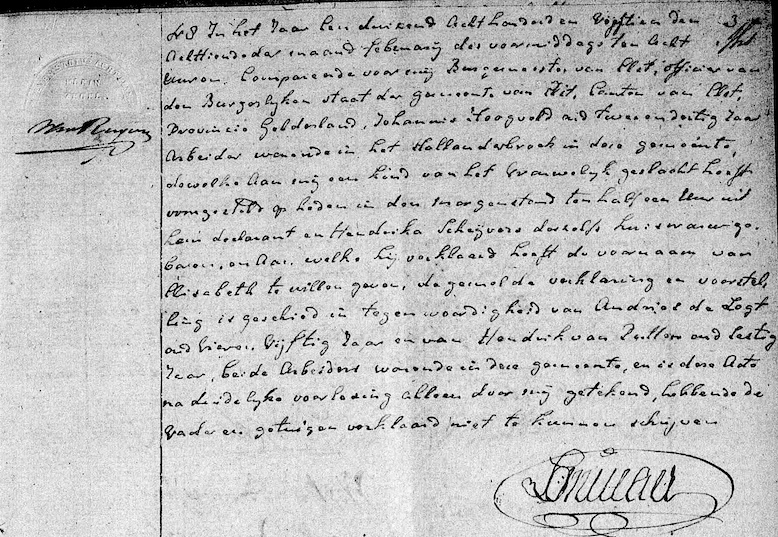 N 8 In het Jaar Een duizend Acht honderd en Vijftien den
Achttiende der maand Februarij des voormiddags ten Acht
Uuren, Compareerde voor mij Burgemeester van Elst, officier van
den Burgerlyken staat der gemeente van Elst, Canton van Elst,
Provincie Gelderland, Johannis Hoogveld oud twee en dertig Jaar
Arbeider woonende in het Hollanderbroek in dese gemeente,
dewelke Aan mij een kind van het Vrouwelyk geslacht heeft
voorgesteld op heden in den morgenstond ten half een Uur uit
hem declarant en Hendrika Scheijvers deszelfs huisvrouw ge-
boren, en Aan welke hij verklaard heeft de voornaam van
Elisabeth te willen geven, de gemelde verklaring en voorstel-
ling is geschied in tegenwoordigheid van Andries de Logt
oud Vier en Vijftig Jaar en van Hendrik van oud sestig
Jaar, beide Arbeiders woonende in dese gemeente, en is dese Acte
na duidelyke voorlesing alleen door mij getekend, hebbende de
Vader en getuigen verklaard niet te kunnen schrijven